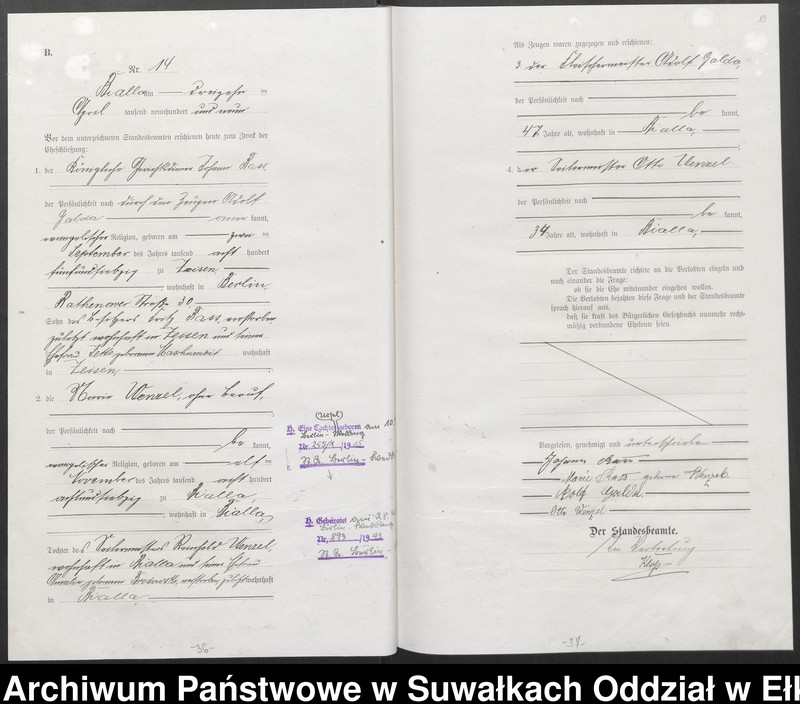 B.
Nr. 14
Bialla am dreizehn ten
April tausend neunhundert und neun
Vor dem unterzeichneten Standesbeamten erschienen heute zum Zweck der
Eheschließung:
1. der Königliche Gerichtsdiener Johann
der Persönlichkeit nach durch den Zeugen Adolf
Galda kannt,
evangelischer Religion, geboren am zwei ten
September des Jahres tausend acht hundert
fünfundsiebzig zu
, wohnhaft in Berlin,
Rathenower Straße 30
Sohn des Besitzers Fritz verstorben
zuletzt wohnhaft in und seiner
Ehefrau geborenen wohnhaft
in
2. die Marie Wenzel, ohne Beruf,
der Persönlichkeit nach
be kannt,
evangelischer Religion, geboren am elf ten
November des Jahres tausend acht hundert
achtundsiebzig zu Bialla,
, wohnhaft in Bialla,
Tochter des Seilermeisters Reinhold Wenzel,
wohnhaft in Bialla und seiner Ehefrau
geborenen verstorben, zuletzt wohnhaft
in Bialla
H. Eine Tochter geboren am 10.
Berlin-
Nr. /19
H. Geheiratet am
Berlin-
Nr. 893 /1943
Berlin
-36-
Als Zeugen waren zugezogen und erschienen:
3. der Fleischermeister Adolf Galda,
der Persönlichkeit nach
be kannt,
47 Jahre alt, wohnhaft in Bialla,
4. der Seilermeister Otto Wenzel
der Persönlichkeit nach
be kannt,
34 Jahre alt, wohnhaft in Bialla,
Der Standesbeamte richtete an die Verlobten einzeln und
nach einander die Frage:
ob sie die Ehe miteinander eingehen wollen.
Die Verlobten bejahten diese Frage und der Standesbeamte
sprach hierauf aus,
daß sie kraft des Bürgerlichen Gesetzbuchs nunmehr recht-
mäßig verbundene Eheleute seien.
Vorgelesen, genehmigt und unterschrieben
Johann
Marie geborene Wenzel
Adolf Galda
Otto Wenzel
Der Standesbeamte.
In Vertretung
-37-
Archiwum Państwowe w Suwałkach Oddział w Ełk